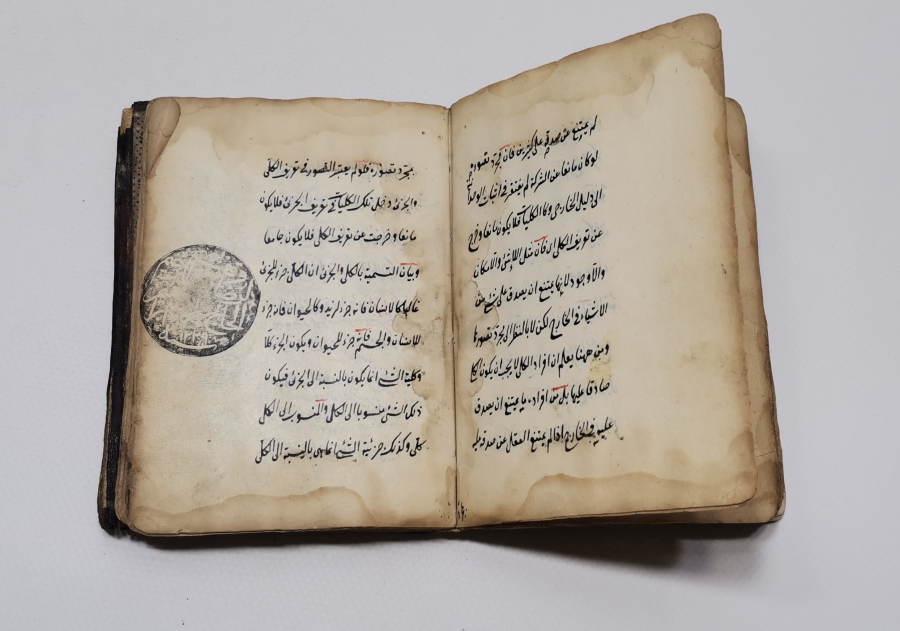 له يمتنع عن صدقه على كثيرين فان مجرد تصوره
لو كان مانعا عن الشركة لم يفتقر في اثبات الوحدة
الى دليل الخارجي وكالكليات فلا يكون مانعا وخرج
عن تعريف الكلي ان فان مثل اللاشئ واللاامكان
واللاوجود لانها يمتنع ان يصدق على شئ من
الاشياء في الخارج لكن لا بالنظر الى مجرد تصورها
ومن ههنا يعلم ان افراد الكلي لا يجب ان يكون الكلي
صادقا عليها بل من افراده ما يمتنع ان يصدق
عليه في الخارج اذا لم يمتنع العقل عن صدقه عليه
بمجرد تصوره فلو لم يعتبر التصور في تعريف الكلي
والجزئي دخل تلك الكليات في تعريف الجزئي فلا يكون
مانعا وخرجت عن تعريف الكلي فلا يكون جامعا
وبيان التسمية بالكلي والجزئي ان الكلي جزء للجزئي
غالبا كالانسان فانه جزء لزيد وكالحيوان فانه جزء
للانسان والجسم فانه جزء للحيوان ويكون الجزئي كلا
وكلية الشئ انما يكون بالنسبة الى الجزئي فيكون
ذلك الشئ منسوبا الى الكل والمنسوب الى الكل
كلي وكذلك جزئية الشئ انما هي بالنسبة الى الكلي